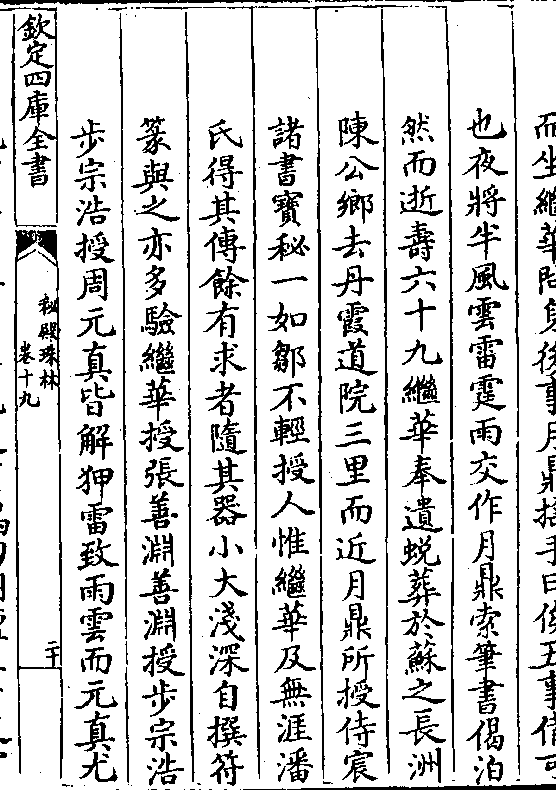 而坐繼華問身後事月鼎搖手曰俟五事信可
也夜將半風雲雷霆雨交作月鼎索筆書偈泊
然而逝壽六十九繼華奉遺蛻葬於蘇之長洲
陳公鄉去丹霞道院三里而近月鼎所授侍宸
諸書寶秘一如鄒不輕授人惟繼華及無涯潘
氏得其傳餘有求者隨其器小大淺深自撰符
篆與之亦多驗繼華授張善淵善淵授步宗浩
步宗浩授周元真皆解狎雷致雨雲而元真尤
欽定四庫全書
秘殿珠林
卷十九
二十